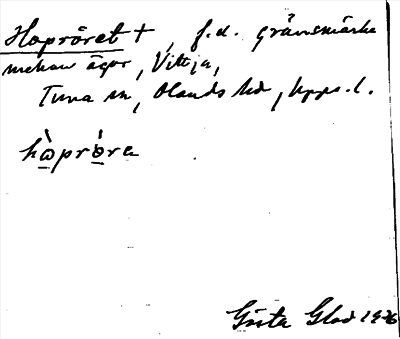 Hopröret +, f.d. gränsmärke
mellan ägor, Vittja,
Tuna sn, Olands hd, Upps. l.
hòpròra
Gösta Glad 1926